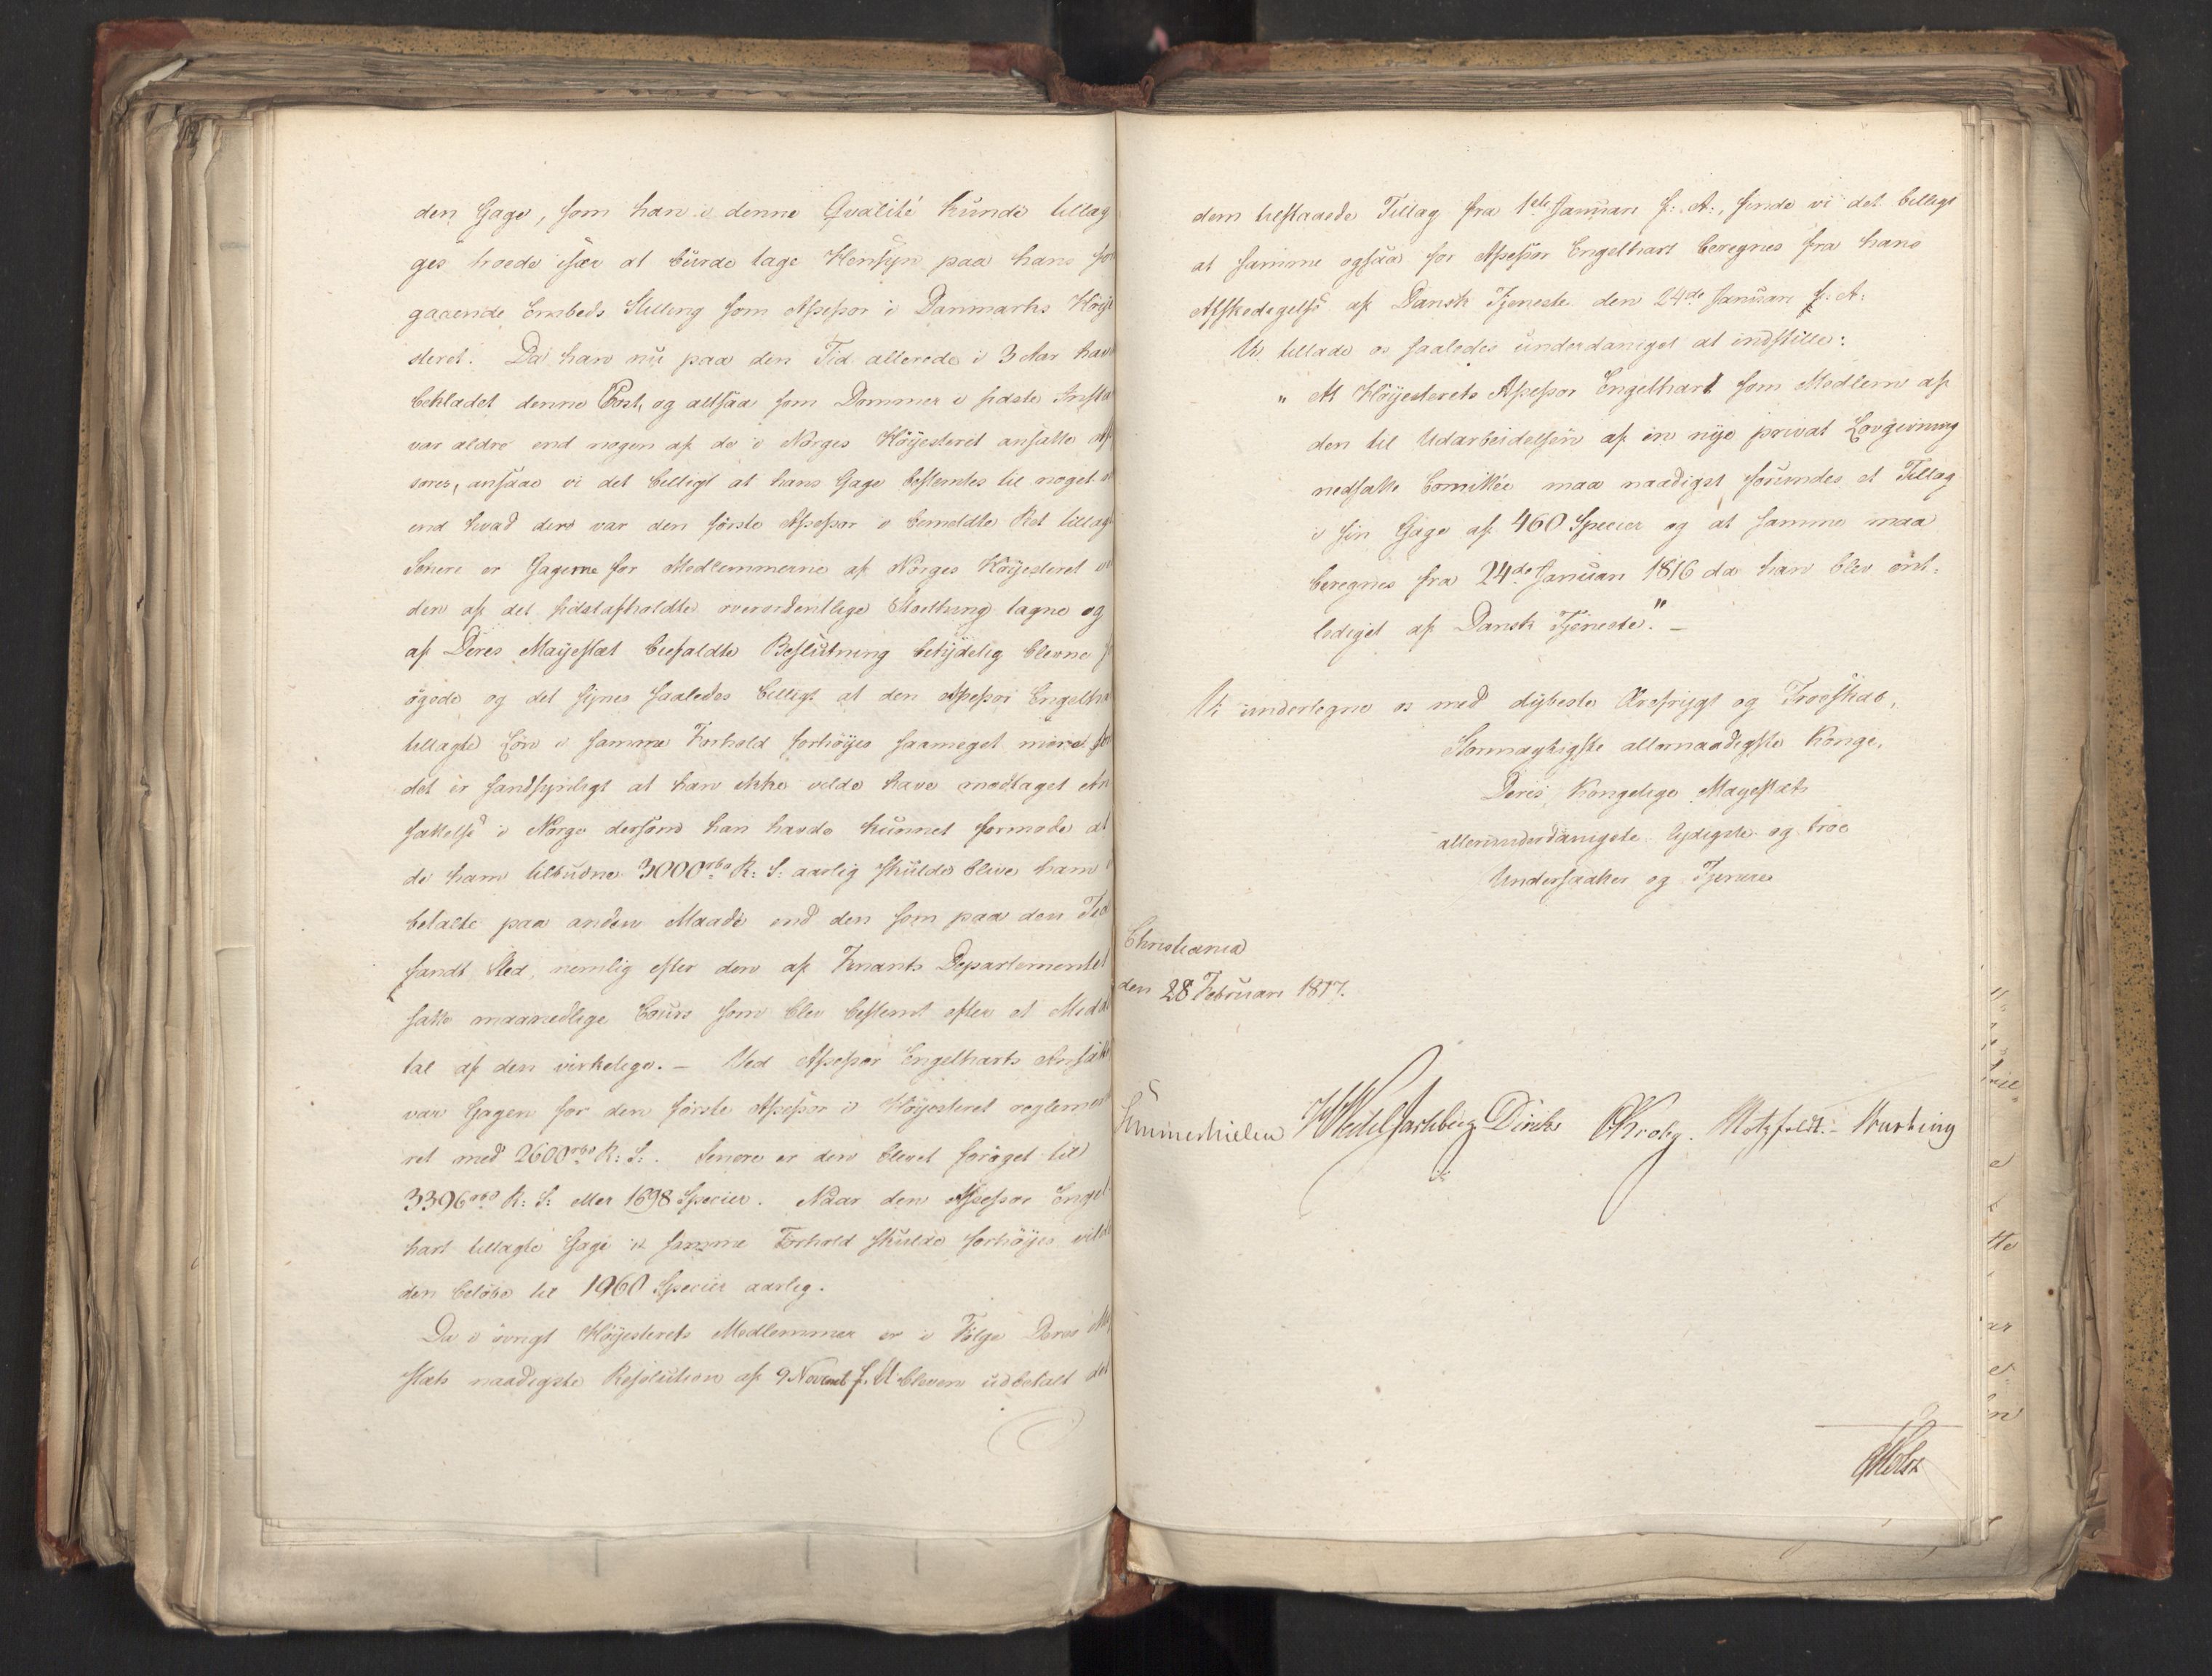 den Gage, som han i denne Qvalité kunde tillæg
ges troede især at burde tage Hensyn paa hans for
gaaende Embeds Stilling som Assessor i Danmarks Höye
steret. Da han nu paa den Tid allerede i 3 Aar havde
bekladet denne Post, og altsaa som Dommer i sidste Insta
var ældre end nogen af de i Norges Höyesteret ansatte As
sorer, ansaae vi det billigt at hans Gage bestemtes til noget
end hvad der var den förste Assessor i bemeldte Ret tillagt
Senere er Gagerne for Medlemmerne af Norges Höyesteret
den af det sidstafholdte overordentlige Storthing tagne og
af Deres Mayestæt biefaldte Beslutning betÿdelig blevne
ögede og det sÿnes saaledes billigt at den Assessor Engelha
tillagte Lön i samme Forhold forhöÿes saameget mere som
det er sandsÿnligt at han ikke vilde have modtaget An
sættelse i Norge dersom han havde kunnet formode at
de ham tilbudne 3000 rbd R: S: aarlig skulde blive ham
betalte paa anden Maade end den som paa den Tid
fandt Sted, nemlig efter den af Finants Departementet
satte maanedlige Cours som blev bestemt efter et Middel
tal af den virkelige. – Ved Assessor Engelharts Ansætte
var Gagen for den förste Assessor i Höyesteret reglemen
ret med 2600 rbd R: S:. Senere er den blevet foröget til
3396 rbd R: S: eller 1698 Specier. Naar den Assessor Engel
hart tillagte Gage i samme Forhold skulde forhöÿes vilde
den belöbe til 1960 Specier aarlig.
Da i övrigt Höyesterets Medlemmer er i Fölge Deres Ma
stæts naadigste Resolution af 9 Novemb f. A. bleven udbetalt det
dem tilstaaede Tillæg fra 1ste Januari f: A:, finde vi det billigt
at samme ogsaa for Assessor Engelhart beregnes fra hans
Afskedigelse af Dansk Tjeneste den 24de Januari f: A:
Vi tillade os saaledes underdanigst at indstille:
" At Höyesterets Assessor Engelhart som Medlem af
den til Udarbeidelsen af en nÿe privat Lovgivning
nedsatte Comittée maa naadigst forundes et Tillæg
i sin Gage af 460 Specier og at samme maa
beregnes fra 24de Januari 1816 da han blev ent-
lediget af Dansk Tjeneste." –
Vi undertegne os med dÿbeste Ærefrÿgt og Troeskab,
Stormægtigste allernaadigste Konge,
Deres Kongelige Mayestæts
allerunderdanigste lÿdigste og troe
Undersaatter og Tjenere
Christiania
den 28 Februari 1817.
Sommerhielm HWedel Jarlsberg Diriks CKrohg. Motzfeldt. – Mürbing
Holst